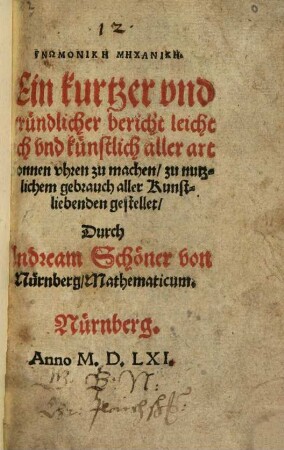 12
ΓΝΩΜΟΝΙΚΗ ΜΗΧΑΝΙΚΗ.
Ein kurtzer vnd
ründlicher bericht leicht
ch vnd künstlich aller art
onnen vhren zu machen/ zu nutz⸗
lichem gebrauch aller Kunst⸗
liebenden gestellet/
Durch
ndream Schöner von
Nürnberg/Mathematicum.
Nürnberg.
Anno M. D. LXI.